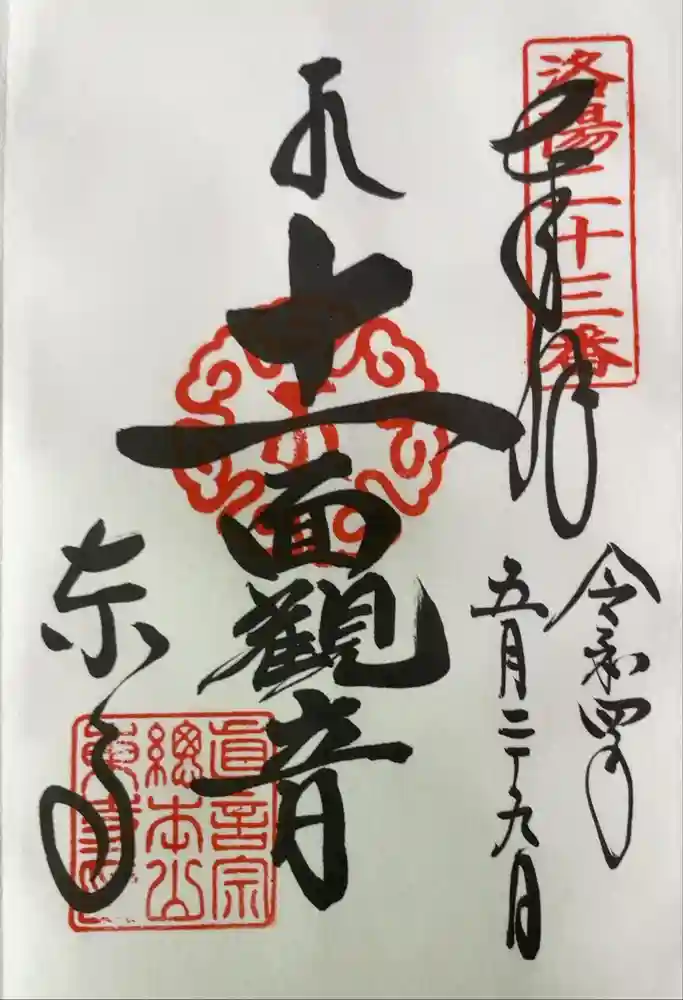 洛陽二十三番
奉拝
令和四年
五月二十九日
十一面觀音
東寺
眞言宗
總本山
東寺印